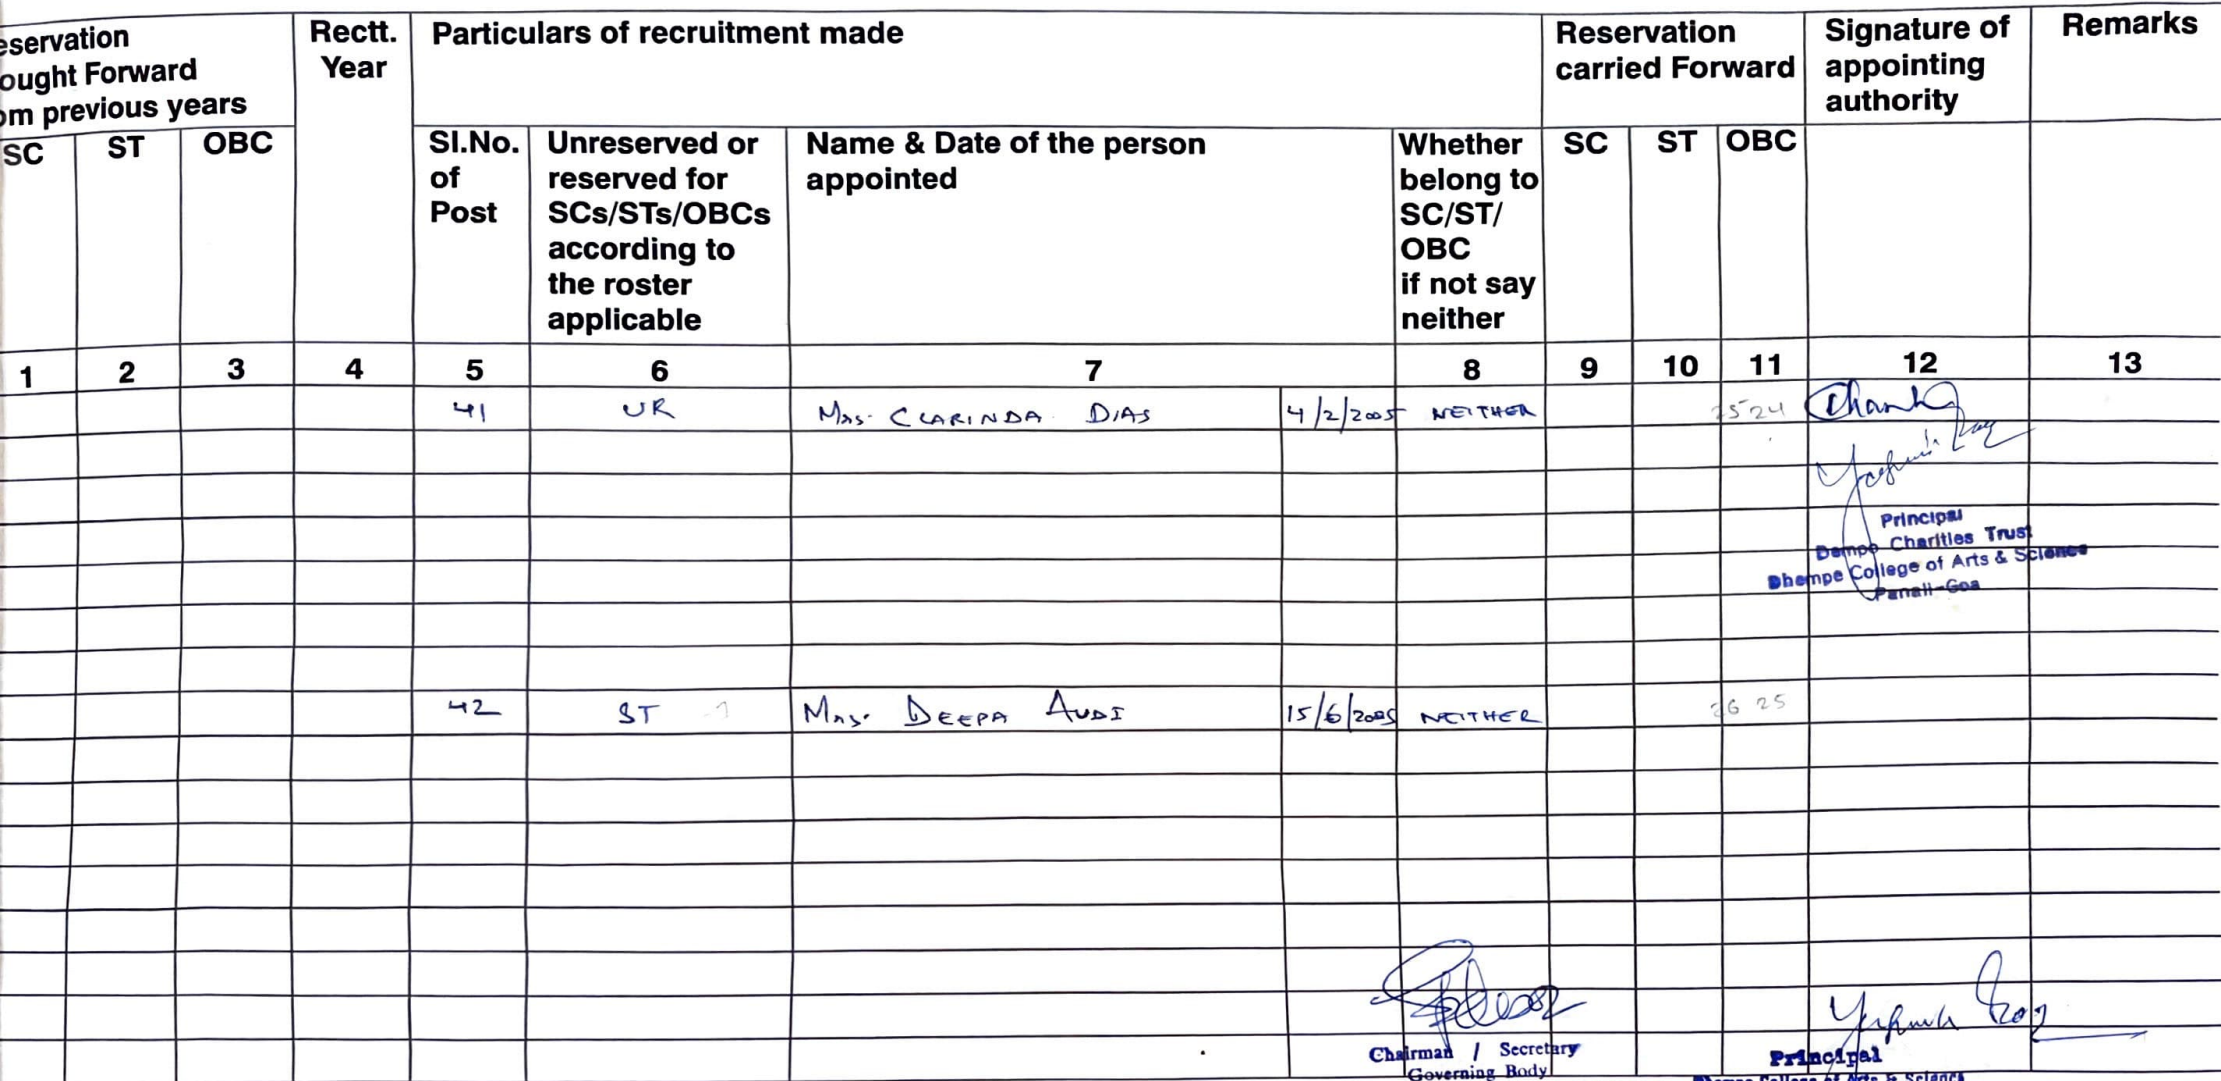 eservation
ought Forward
om previous years
Rectt.
Year
Particulars of recruitment made
Reservation
carried Forward
Signature of
appointing
authority
Remarks
SC ST OBC
Sl.No.
of
Post
Unreserved or
reserved for
SCs/STs/OBCs
according to
the roster
applicable
Name & Date of the person
appointed
Whether
belong to
SC/ST/
OBC
if not say
neither
SC ST OBC
1 2 3 4 5 6 7 8 9 10 11 12 13
41 UR Mrs. CLARINDA DIAS 4/2/2005 NEITHER 25 24
Principal
Dempo Charities Trust
Dhempe College of Arts & Science
Panaji-Goa
42 ST 1 Mrs. DEEPA AUDI 15/6/2005 NEITHER 26 25
Chairman / Secretary
Governing Body
Principal
Dhempe College of Arts & Science